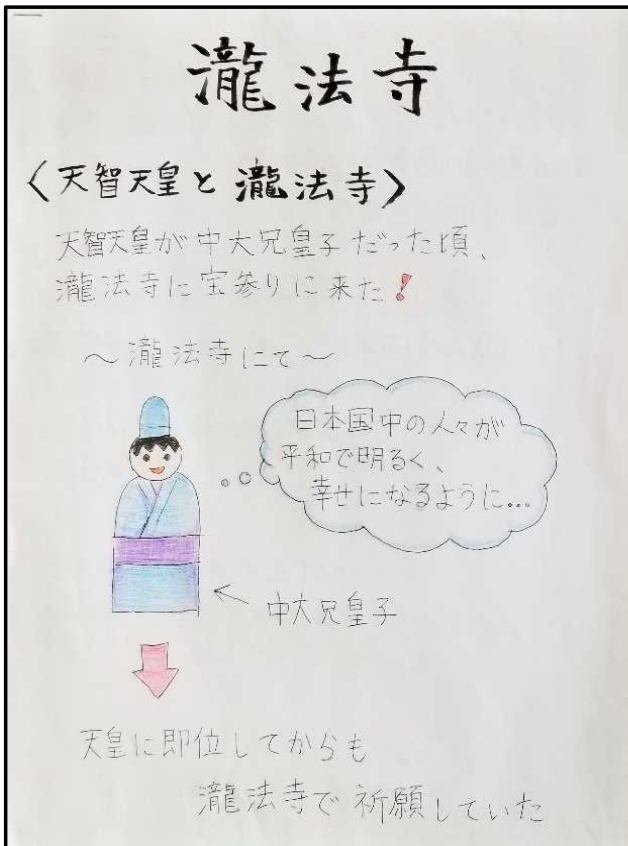 瀧法寺
〈天智天皇と瀧法寺〉
天智天皇が中大兄皇子だった頃、
瀧法寺に宝参りに来た!
～瀧法寺にて～
日本国中の人々が
平和で明るく、
幸せになるように…
← 中大兄皇子
天皇に即位してからも
瀧法寺で祈願していた